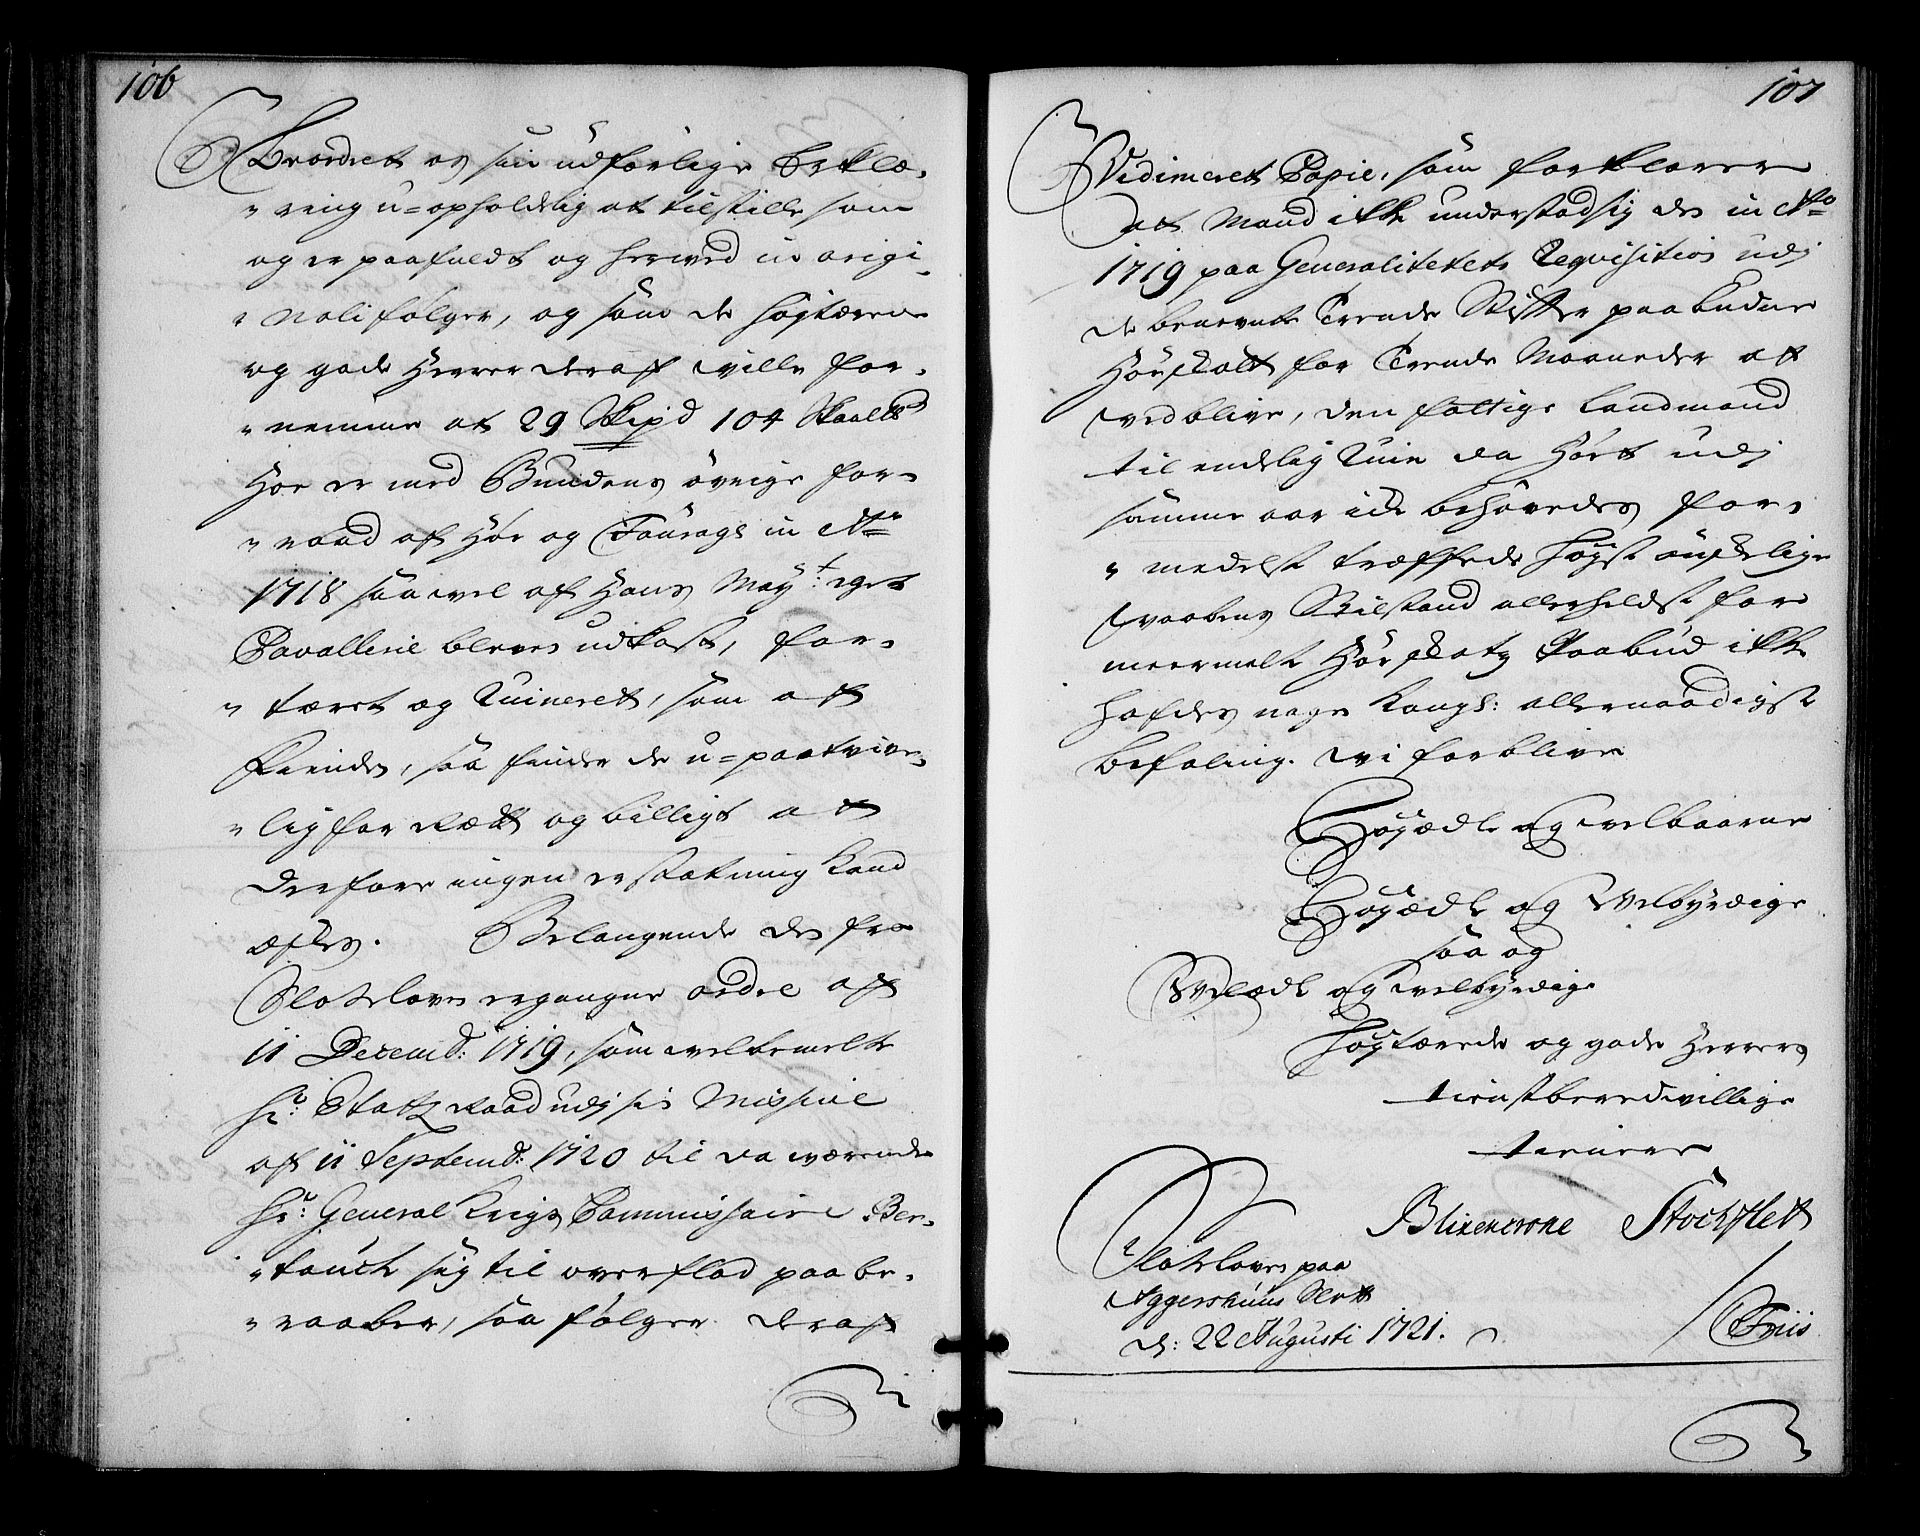 106
Beordret os sin udførlige Erklæ-
"ring u=opholdelig at tilstille som
og er paafuldt og herved in origi-
"nali følger, og som de høytærede
og gode Herrer deraf ville for-
"nemme at 29 Skipd 104 Skaalld
Høe er med Bundens øvrige for-
"raad af Høe og Fourage in Ao
1718 saavel af Hans Mayt: eget
Cavallerie bleven udkast, for-
"tæret og Ruineret, som af
Fienden, saa finder de u=paatvive-
"lig for Rætt og billigt at
derfore ingen erstatning kand
æskes. Belangende den fra
Slotsloven ergangne ordre af
11 Decembr: 1719, som velbemelte
Hr: Etatz Raad udj sin Missive
af 11 Septembr: 1720 til da værende
Hr: General Krigs Commissaire Ber-
"touch sig til overflod paabe-
"raaber, saa følger deraf
107
Vidimeret Copie, som forklarer
at Mand ikke understod sig den in Ao
1719 paa Generalitetets Requisition udj
de benevnte Trende Stifter paabudne
Høeskatt for Trende Maaneder at
vedblive, den fattige Landmand
til endelig Ruin da Høet udj
samme aar icke behøvedes for-
"medelst træffede høyst ønskelige
Vaabens Stilstand allerheldst fore
meermelte Høe Skatz Paabud ikke
hafdes nogen Kongl: allernaadigste
befaling. Vi forblive
Høyædle og Velbaarne
Høyædle og Velbyrdige
saa og
Velædle og Velbyrdige
Høytærede og gode Herrers
tienstberedvillige
tienere
Blixencrone Stockflett
Slotsloven paa
Aggershuus Slott
d: 22 Augusti 1721.
Friis